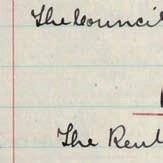 The Council
The Rent